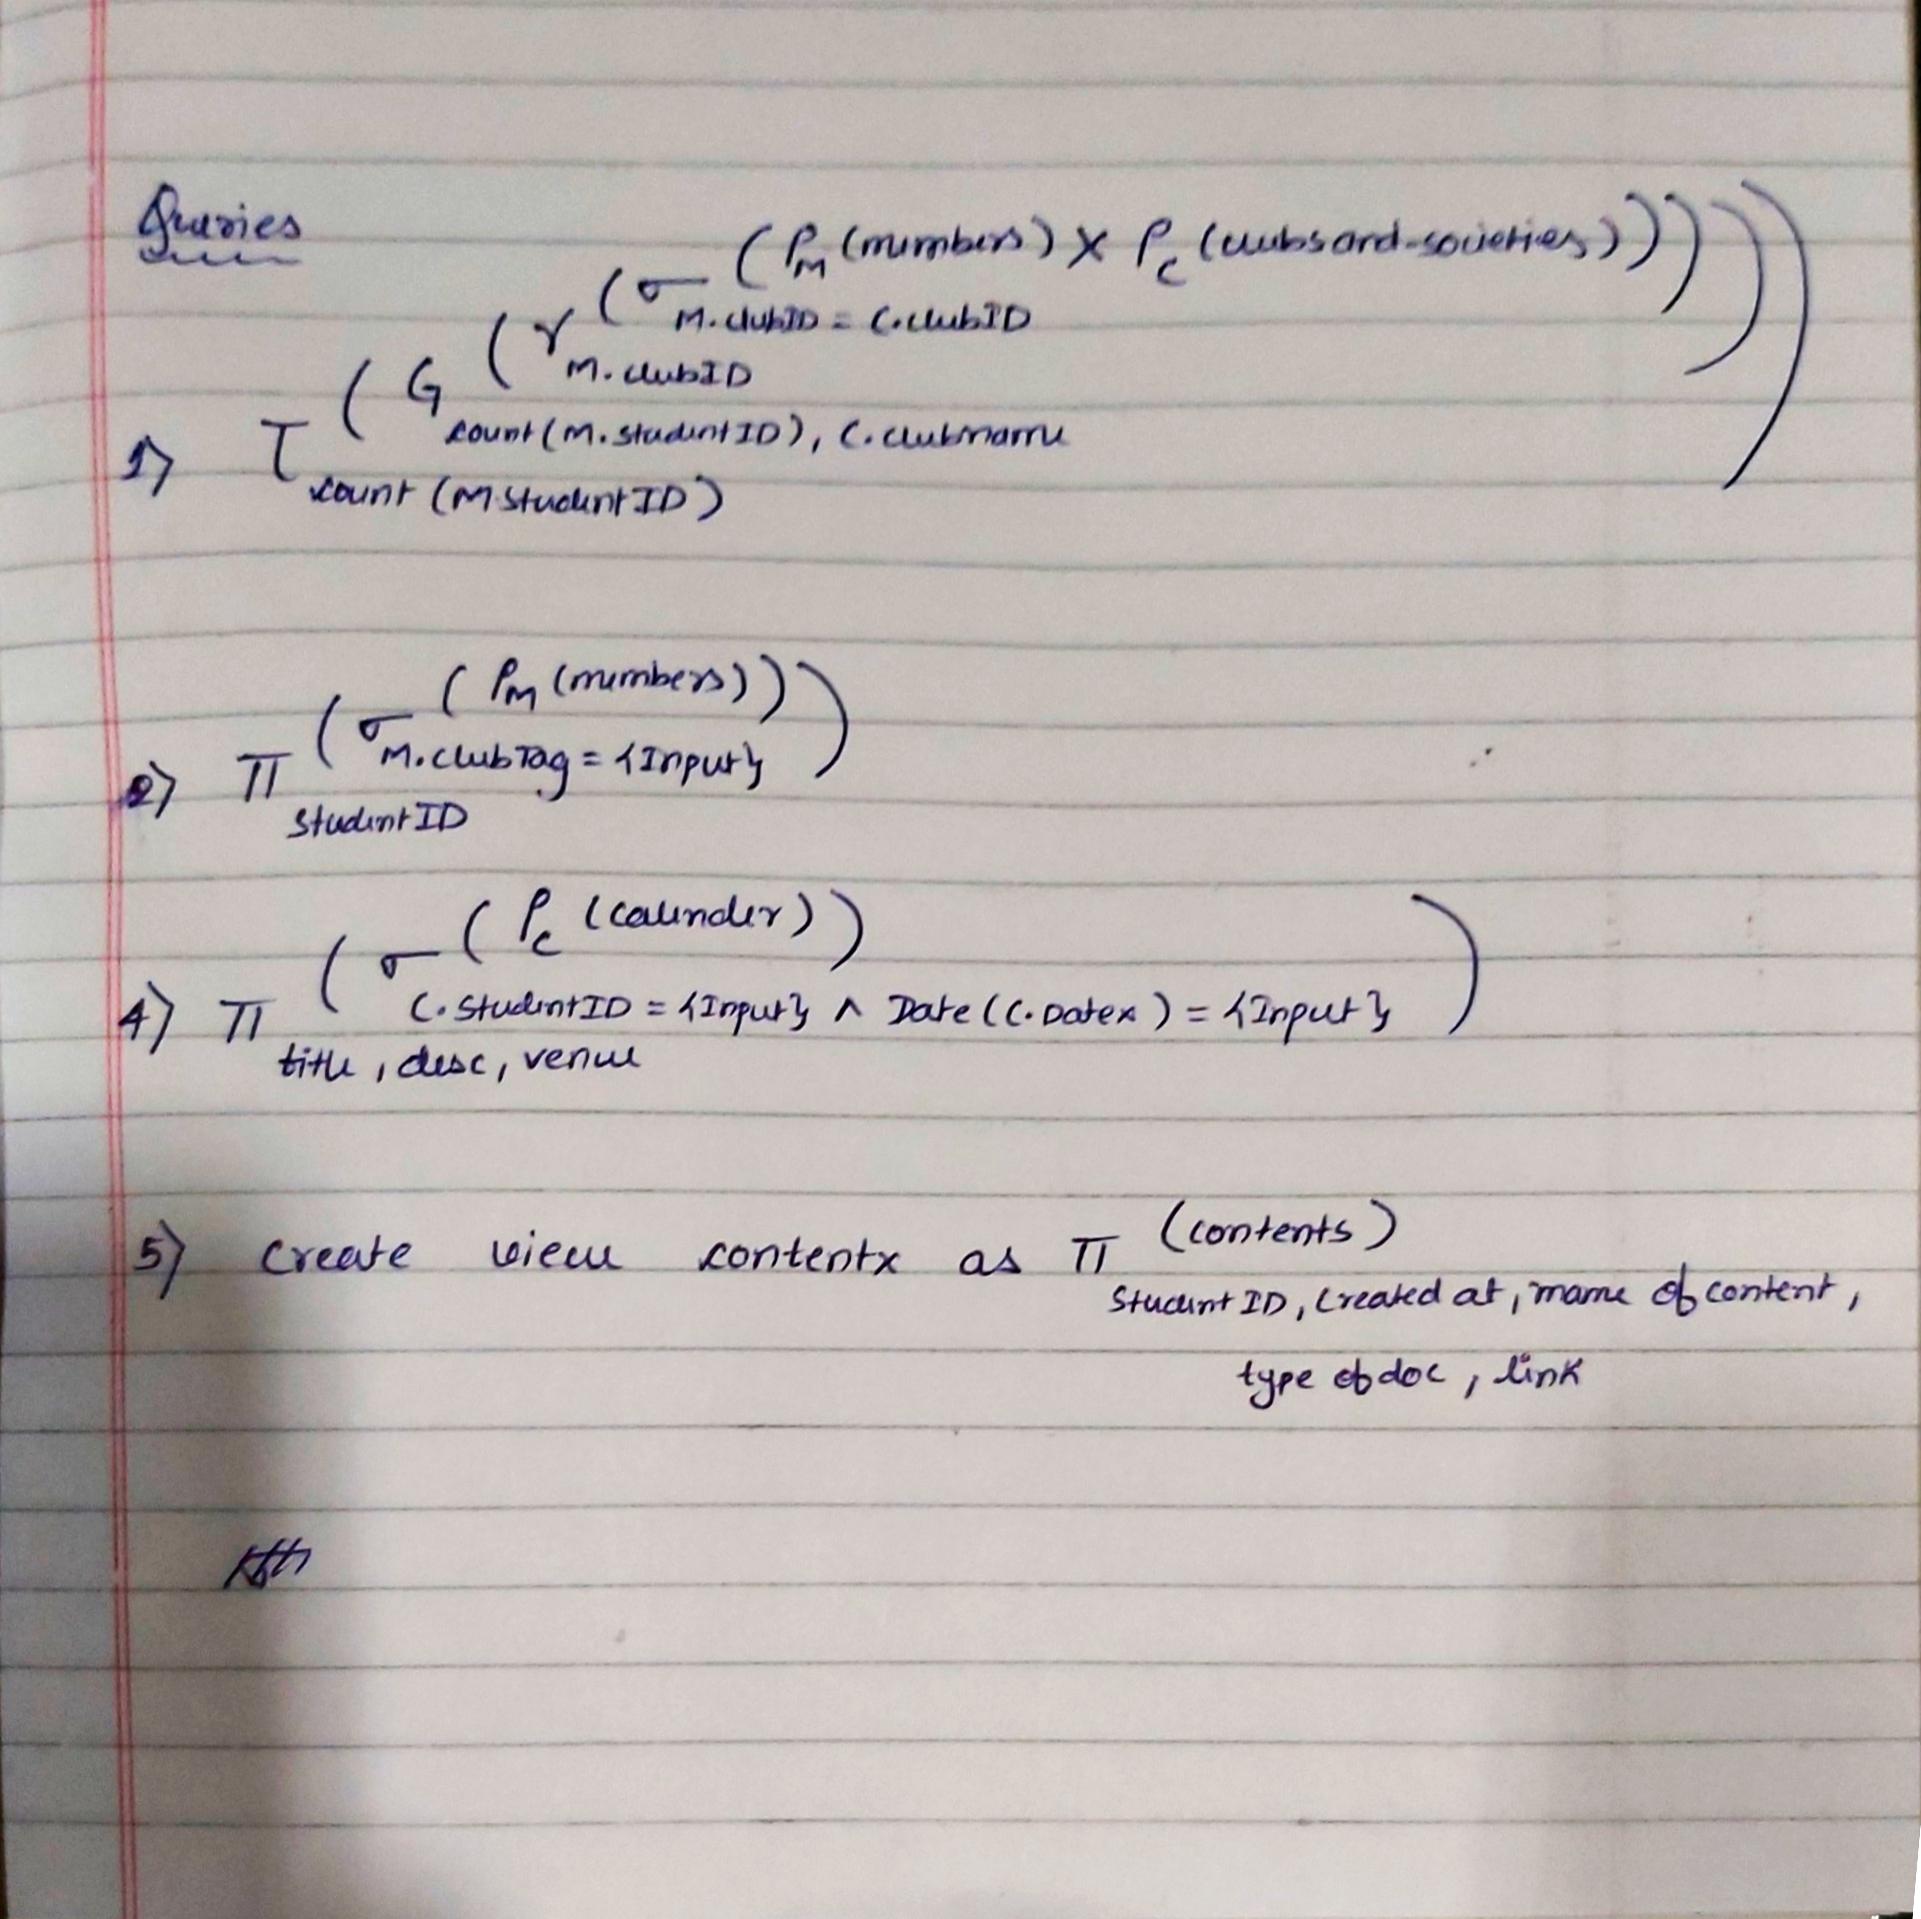 Queries
1) τ count(M studentID) ( G count(M.studentID), C.clubname ( γ M.clubID ( σ M.clubID = C.clubID ( ρ M (members) X ρ C (clubsand-societies)))))
2) π studentID ( σ M.clubTag = {Input} ( ρ M (members)))
4) π title, desc, venue ( σ C.studentID = {Input} ∧ Date((C.Datex) = {Input} ( ρ C (calender)))
5) Create view contentx as π (contents)
StudentID, Created at, name of content,
type of doc, link